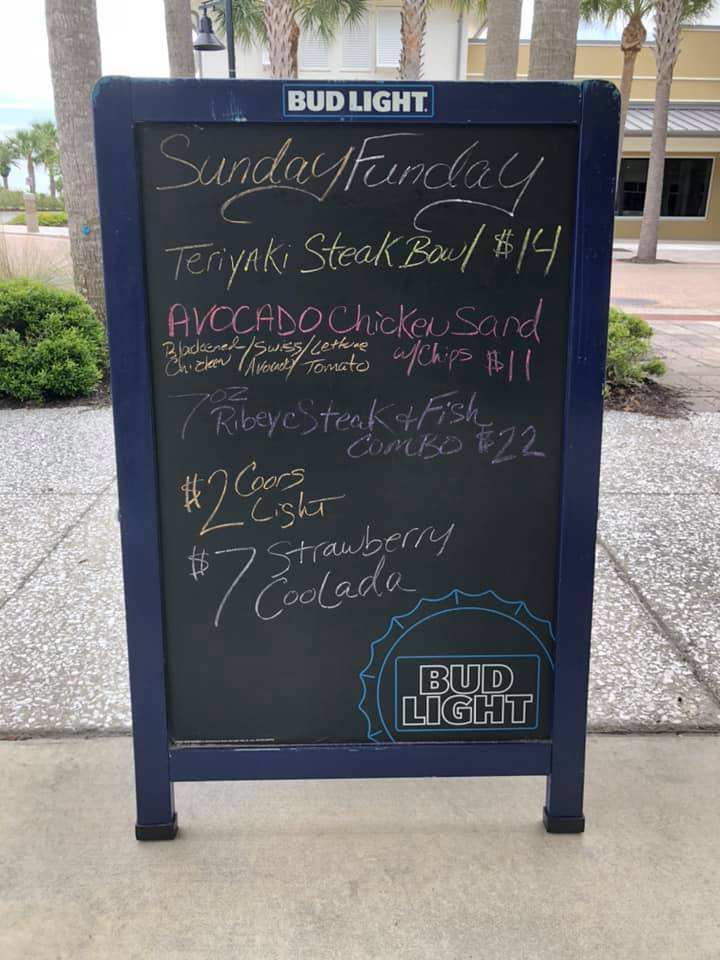 BUD LIGHT.
Sunday Funday
Teriyaki Steak Bowl $14
AVOCADO Chicken Sand
Blackened/Swiss/Lettuce
Chicken/Avocado/Tomato w/Chips $11
7oz Ribeye Steak & Fish
Combo $22
$2 Coors
Light
$7 Strawberry
Coolada
BUD
LIGHT